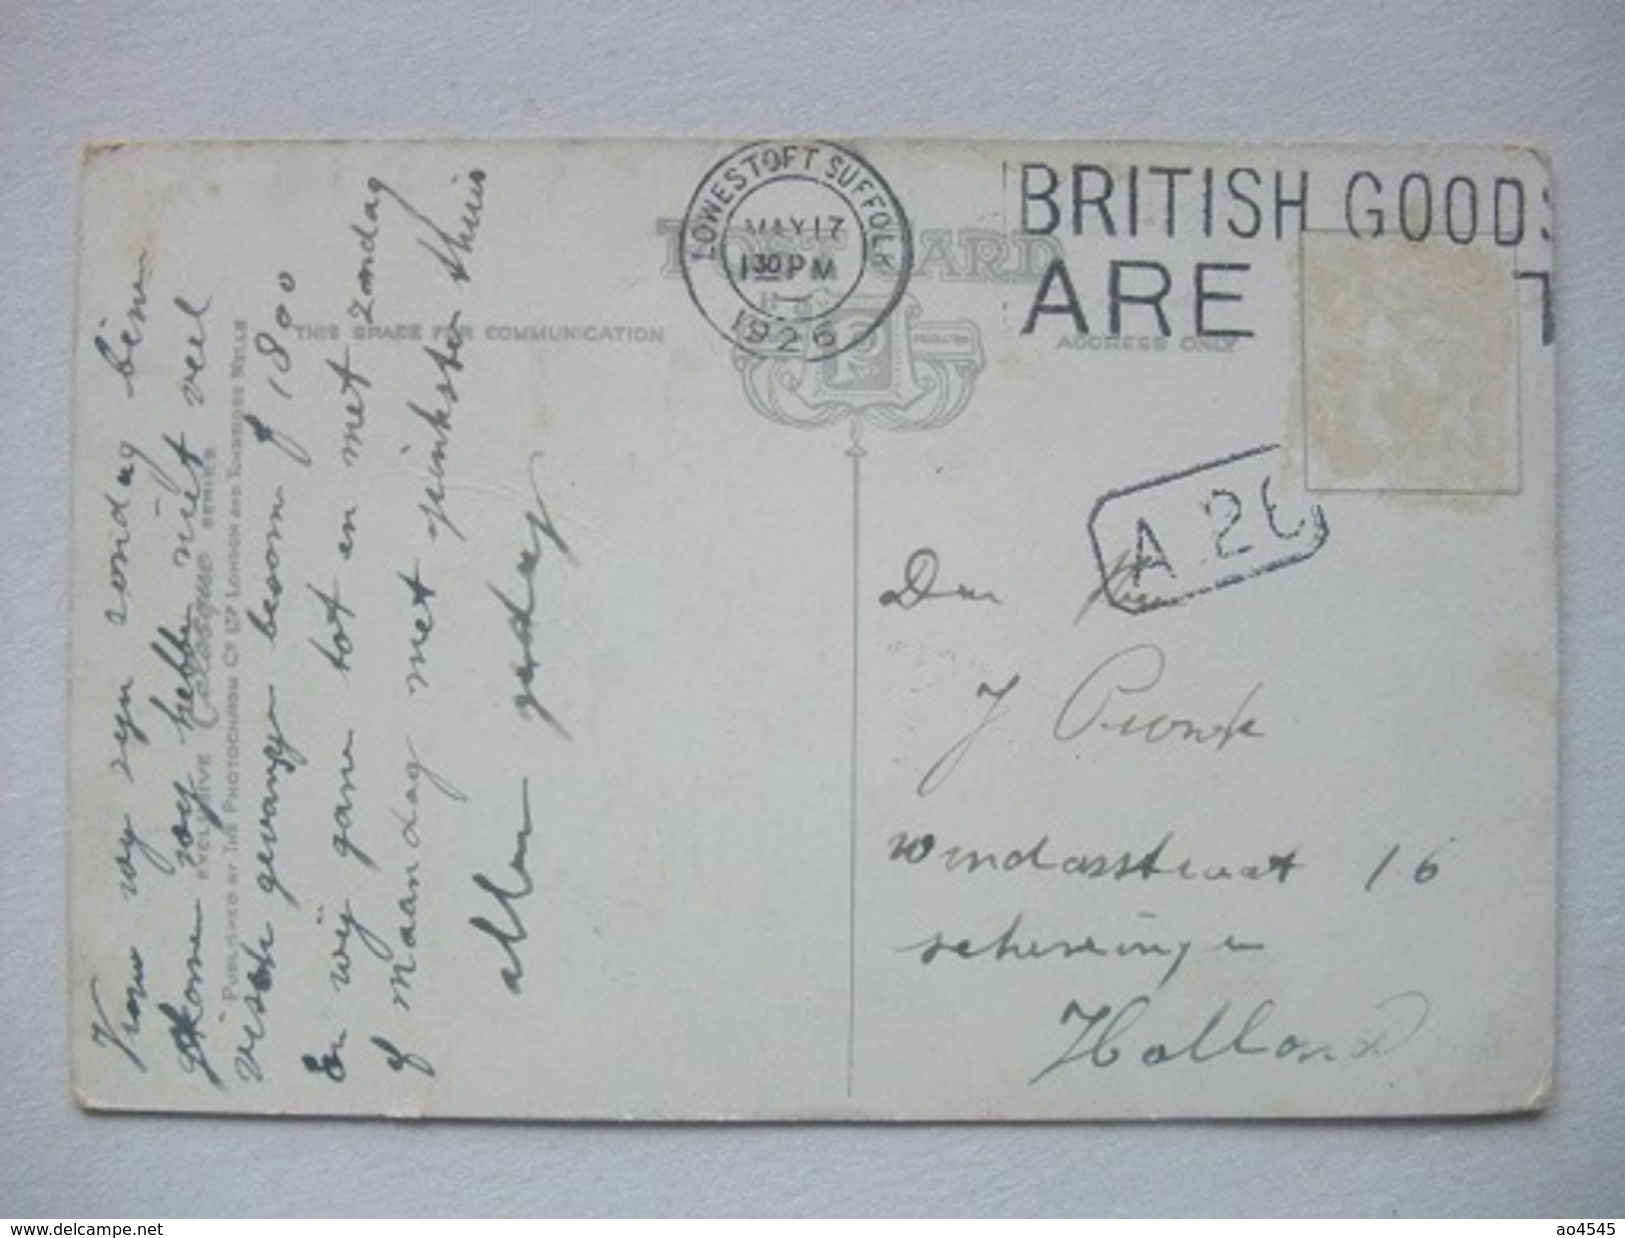 LOWESTOFT SUFFOLK
MAY 17
1 30 PM
1926
BRITISH GOODS
ARE T
POST CARD
THIS SPACE FOR COMMUNICATION
ADDRESS ONLY
A 2
Den
J Pronk
Windasstraat 16
scheveninge
Holland
wy zyn zondag binn
wy hebbe niet veel
visch gevange besom f 1800
En wij gane tot en met zondag
of maandag met pinkster thuis
allen gedag
EXCLUSIVE SERIES
PUBLISHED BY THE PHOTOCHROM Co LTD LONDON AND TUNBRIDGE WELLS
www.delcampe.net
ao4545